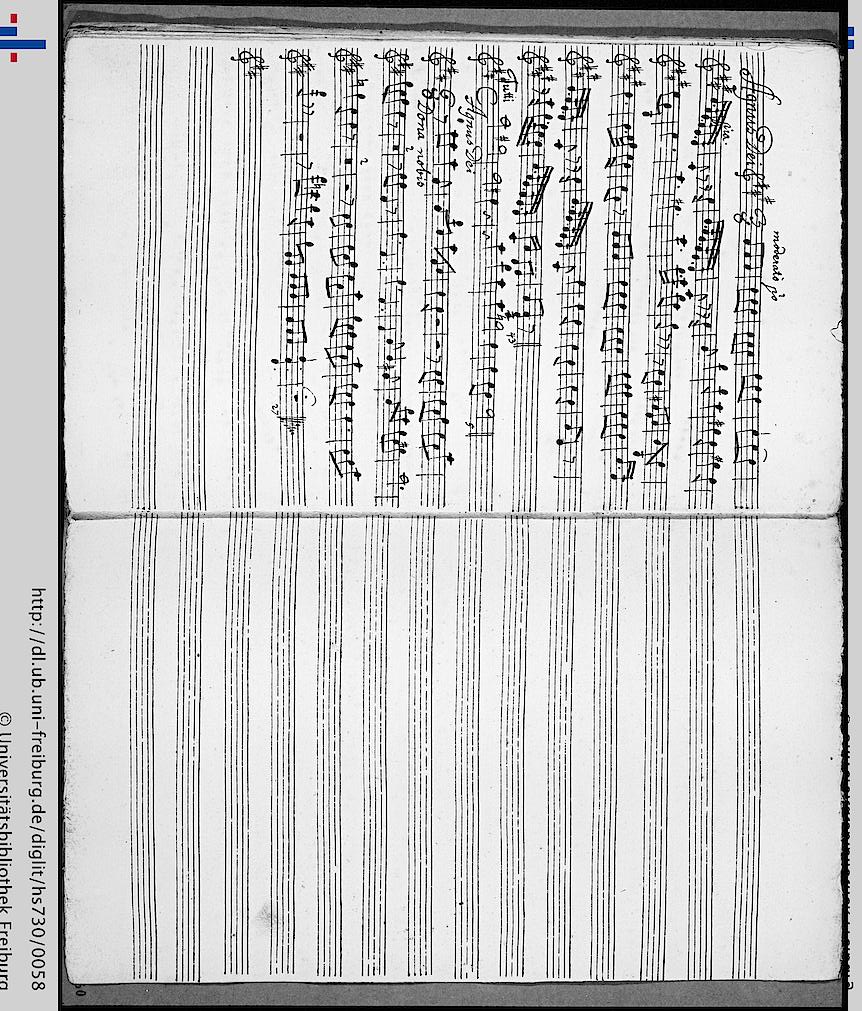 Agnus Dei
moderato
via.
Tutti
43
Agnus Dei
Dona nobis
2
2
http://dl.ub.uni-freiburg.de/diglit/hs730/0058
© Universitätsbibliothek Freiburg